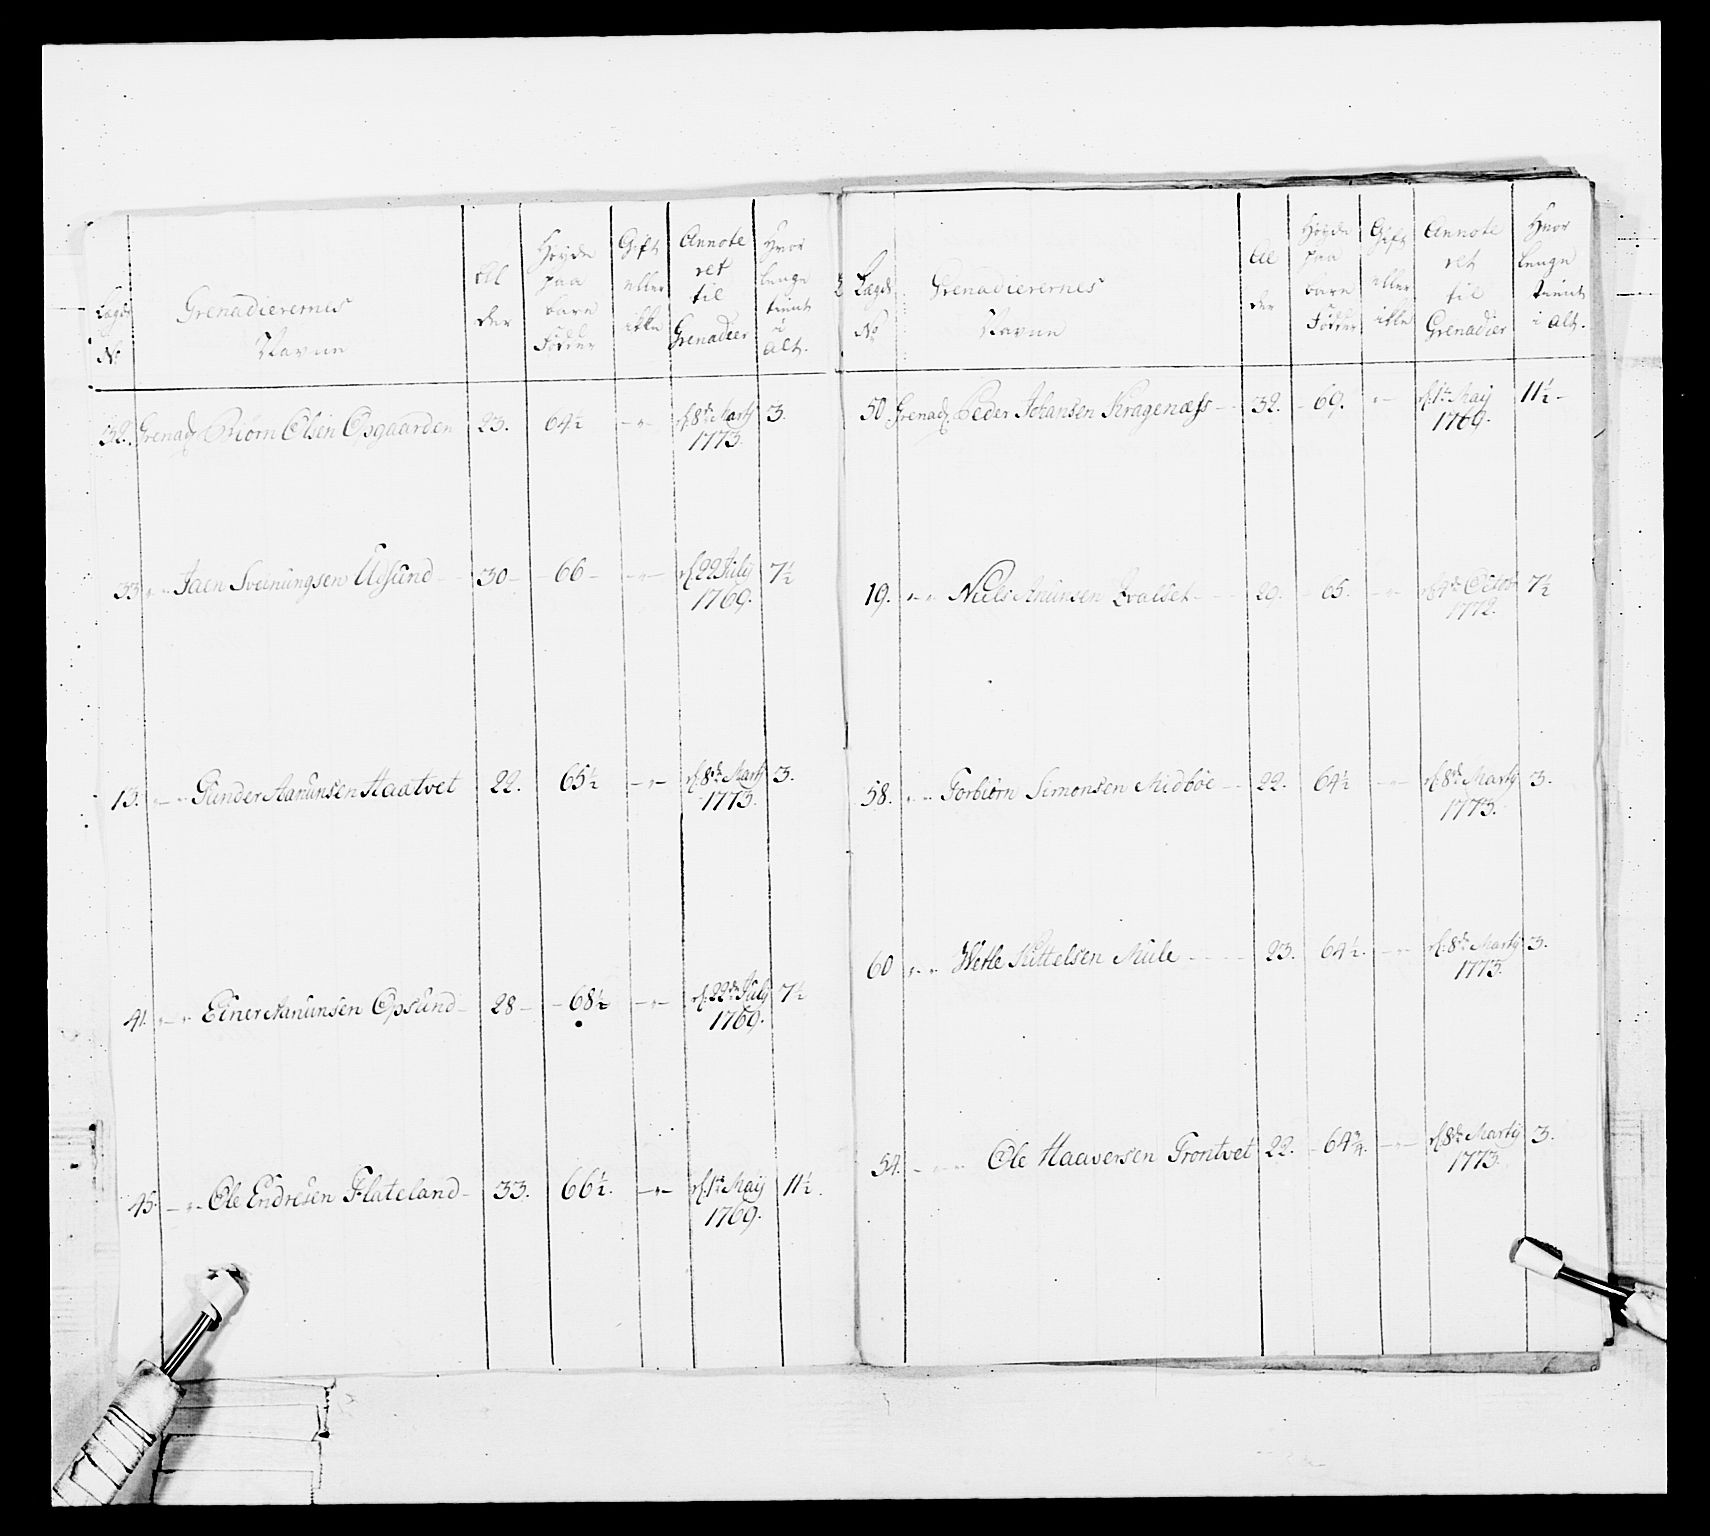 Lægds No Grenadierernes Navne Al der Høyde paa bare Fødder Gift eller ikke Annoteret til Grenadeer Hvor lenge tient i alt.
32. Grenadr Biørn Olsen Opgaarden 23. 64½ -"- d. 8de Martij 1773. 3.
33 " " Jaen Sveinungsen Udsund 30 - 66 - -"- d. 22 July 1769. 7½
13. - " Gunder Aanunsen Haatvet 22. 65½ -"- d. 8de Martij 1773. 3.
41. " " Einer Aanunsen Opsund 28 - 68½ -"- d. 22de July 1769. 7½
45. - " Ole Endresen Flateland 33. 66½. -"- d. 1te Maij 1769. 11½.
Lægds No Grenadierernes Navne Al der Høyde paa bare Fødder Gift eller ikke Annoteret til Grenadier Hvor lenge tient i alt.
50. Grenadr Peder Johansen Kragenæss 32. 69. " - d. 1te Maij 1769. 11½
19. " " Niels Anunsen Qvalset 29. 65. -"- d. 4de Octob 1772. 7½
58. " " Torbiørn Simonsen Midbøe 22. 64½ -"- d. 8de Martij 1773. 3.
60 " " Wetle Kittelsen Mule 23. 64½. -"- d. 8de Martij 1773. 3.
54. - " " Ole Haaversen Trontvet 22. 64¾. -"- d. 8de Martij 1773. 3.